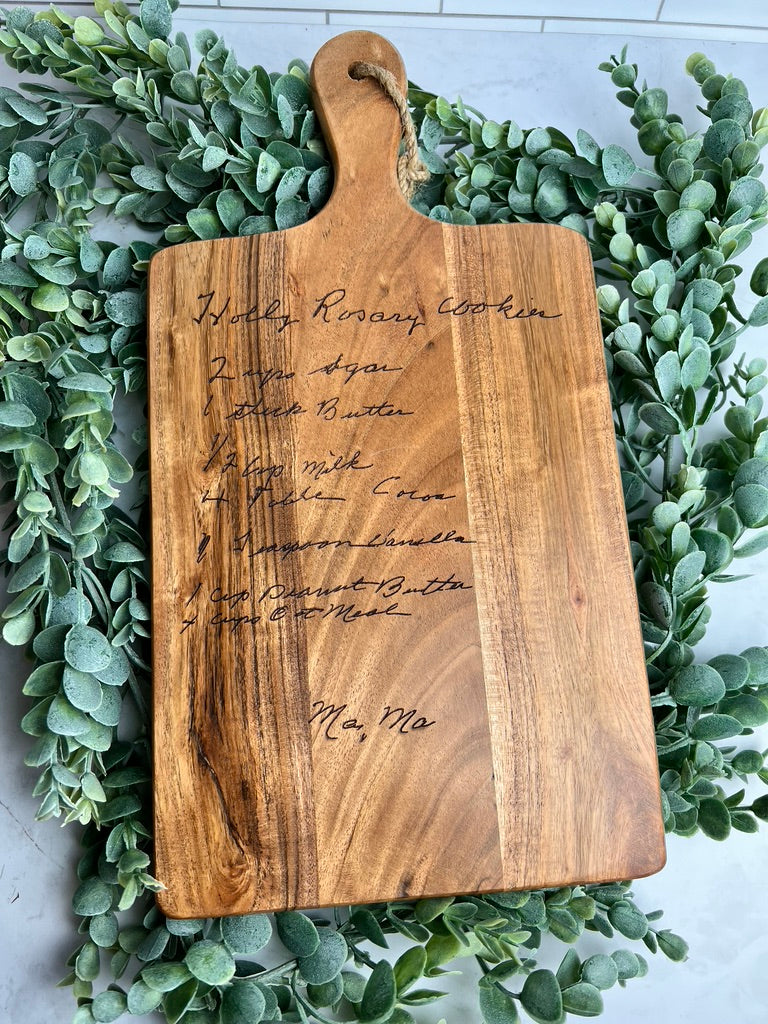 Holly Rosary Cookies
2 cups Sgar
1 stick Butter
1/2 Cup Milk
4 Table Cocoa
1 Teaspoon Vanella
1 Cup Peanut Butter
4 Cups Oot Meal
Ma, Ma